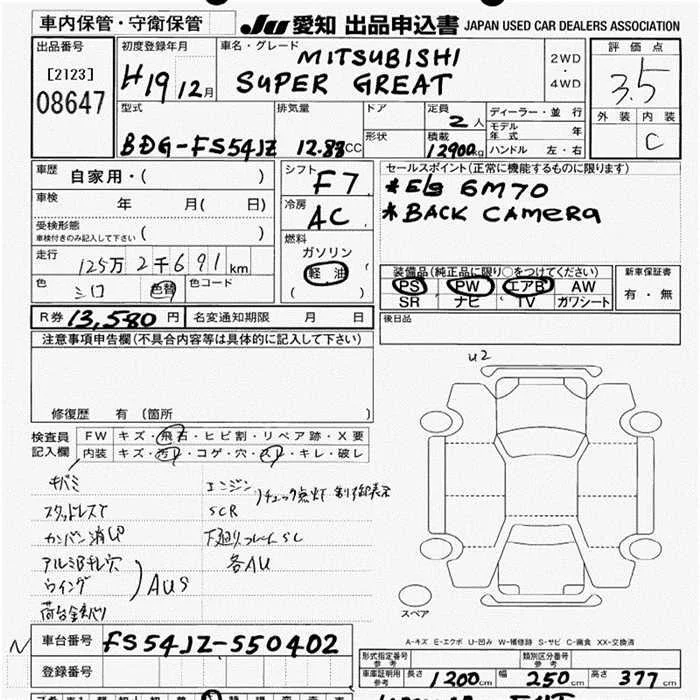 車内保管・守衛保管
JU 愛知 出品申込書 JAPAN USED CAR DEALERS ASSOCIATION
出品番号
[2123]
08647
初度登録年月
H19 12月
車名・グレード
MITSUBISHI
SUPER GREAT
2WD
・
4WD
評価点
3.5
外装 内装
C
型式
BDG-FS54JZ
排気量
12.88CC
ドア
形状
定員
2人
積載
12900kg
ディーラー・並行
モデル年式 年
ハンドル 左・右
車歴
自家用・( )
車検
年 月( 日)
受検形態
車検付きのみ記入して下さい ( )
走行
125万2千691km
色
シロ
色替
色コード
R券 13,580円
名変通知期限 月 日
シフト
F7
冷房
AC
燃料
ガソリン
軽油
( )
セールスポイント(正常に機能するものに限ります)
*E/G 6M70
*BACK CAMERA
装備品(純正品に限り○をつけてください)
PS PW エアB AW
SR ナビ TV ガワシート
新車保証書
有・無
後日品
注意事項申告欄(不具合内容等は具体的に記入して下さい)
修復歴 有(箇所 )
検査員
記入欄
FW キズ・飛石・ヒビ割・リペア跡・X要
内装 キズ・汚レ・コゲ・穴・スレ・キレ・破レ
キバミ
スタッドレスT
カンバン消シ
アルミB
ウイング
AUS
エンジン
SCR
チェック点灯
下廻リフレームSC
各AU
U2
スペア
A-キズ E-エクボ U-凹み W-補修跡 S-サビ C-腐食 XX-交換済
N
車台番号 FS54JZ-550402
登録番号
形式指定番号
参考
類別区分番号
参考
車庫証明用
参考
長さ 1200cm 幅 250cm 高さ 377cm